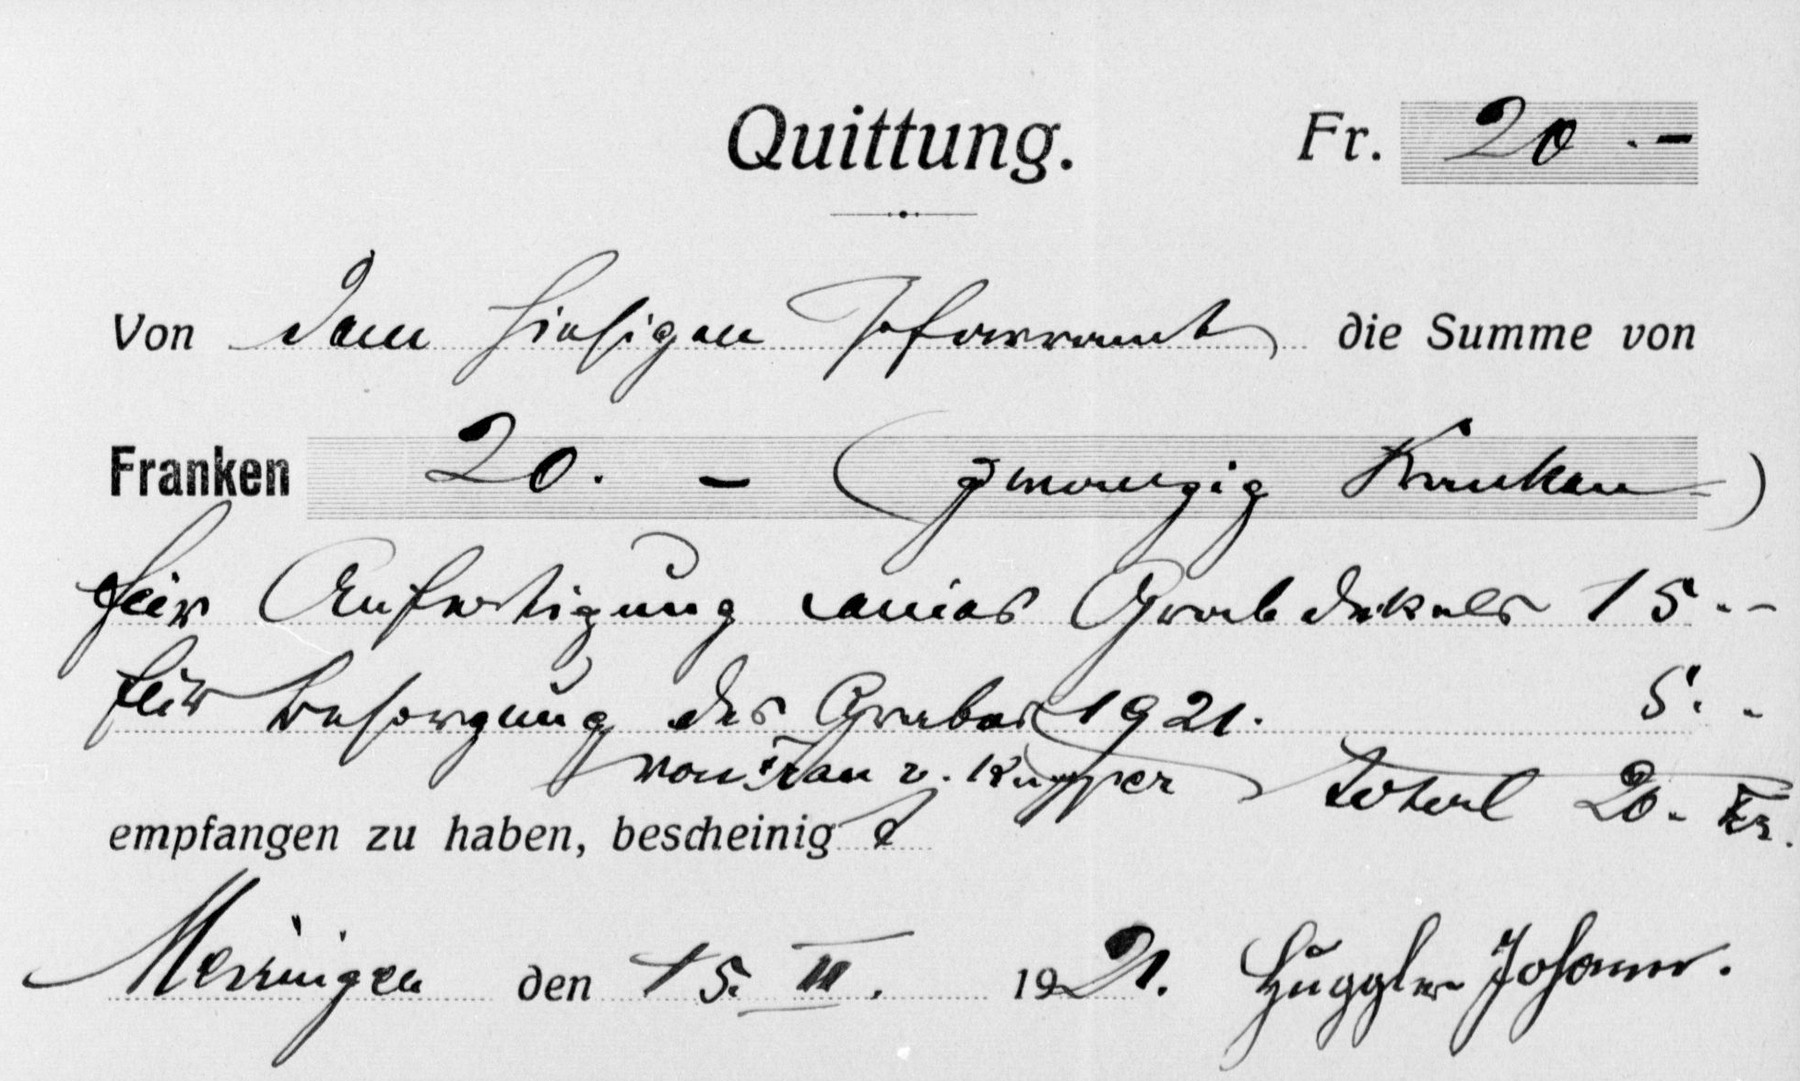 Quittung. Fr. 20.-
Von dem hiesigen Pfarramt die Summe von
Franken 20.- (zwanzig Franken)
für Anfertigung eines Grabdekels 15.-
für Besorgung des Grabes 1921. 5.-
von Frau v. Kupper total 20.- Fr.
empfangen zu haben, bescheinigt
Meiringen den 15. III. 1921. Huggler Johann.